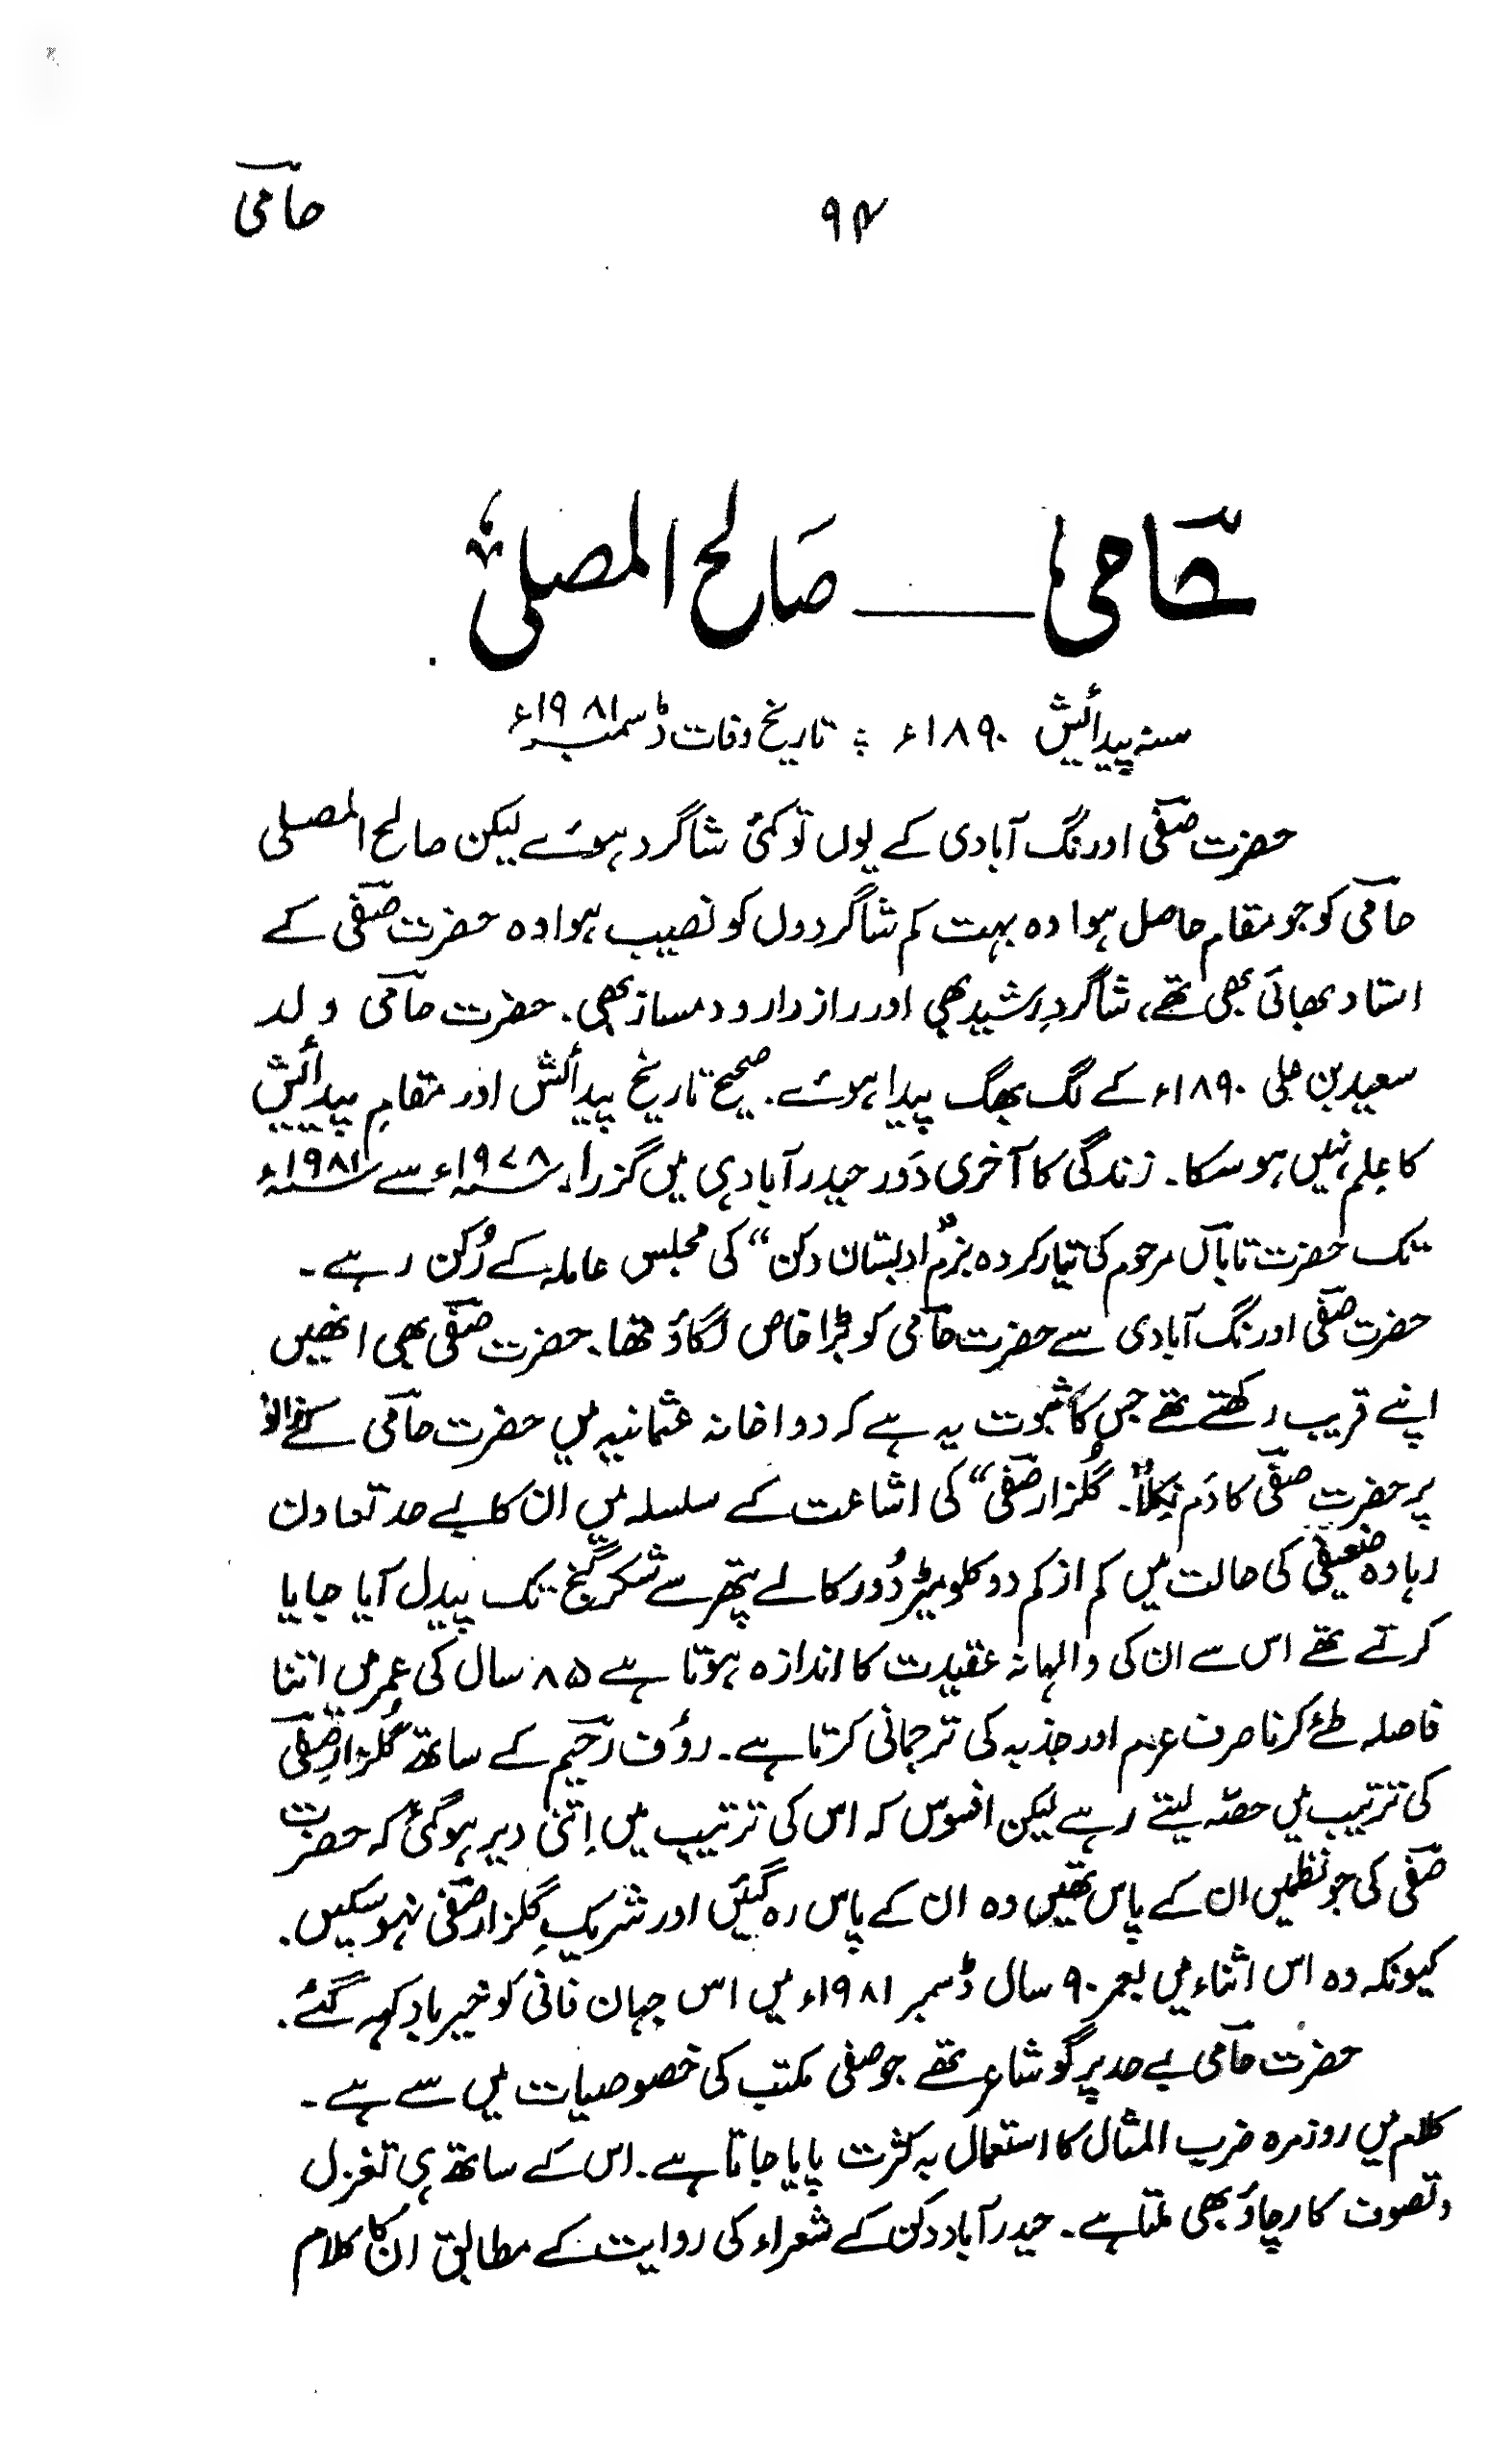 ۹۴
حامیؔ
حامیؔ ــــ صالح المصلی
سنہ پیدائش ۱۸۹۰ء ؛ تاریخ وفات ڈسمبر ۱۹۸۱ء
حضرت صفیؔ اورنگ آبادی کے یوں تو کئی شاگرد ہوئے لیکن صالح المصلی
حامیؔ کو جو مقام حاصل ہوا وہ بہت کم شاگردوں کو نصیب ہوا وہ حضرت صفیؔ کے
استاد بھائی بھی تھے، شاگردِ رشید بھی اور رازدار و دمساز بھی۔ حضرت حامیؔ ولد
سعید بن علی ۱۸۹۰ء کے لگ بھگ پیدا ہوئے۔ صحیح تاریخ پیدائش اور مقامِ پیدائش
کا علم نہیں ہو سکا۔ زندگی کا آخری دَور حیدرآباد ہی میں گزرا۔ ۱۹۷۸ء سے ۱۹۸۱ء
تک حضرت تاباںؔ مرحوم کی تیار کردہ بزم "ادبستان دکن" کی مجلس عاملہ کے رُکن رہے۔
حضرت صفیؔ اورنگ آبادی سے حضرت حامیؔ کو بڑا خاص لگاؤ تھا۔ حضرت صفیؔ بھی انھیں
اپنے قریب رکھتے تھے جس کا ثبوت یہ ہے کہ دواخانہ عثمانیہ میں حضرت حامیؔ کے زانو
پر حضرت صفیؔ کا دَم نکلا۔ "گلزارِ صفیؔ" کی اشاعت کے سلسلہ میں ان کا بے حد تعاون
رہا وہ ضعیفی کی حالت میں کم از کم دو کلومیٹر دُور کالے پتھر سے شکر گنج تک پیدل آیا جایا
کرتے تھے اس سے ان کی والہانہ عقیدت کا اندازہ ہوتا ہے ۸۵ سال کی عمر میں اتنا
فاصلہ طئے کرنا صرف عزم اور جذبہ کی ترجمانی کرتا ہے۔ رؤف رحیمؔ کے ساتھ گلزارِ صفیؔ
کی ترتیب میں حصّہ لیتے رہے لیکن افسوس کہ اس کی ترتیب میں اِتنی دیر ہو گئی کہ حضرت
صفیؔ کی جو نظمیں ان کے پاس تھیں وہ ان کے پاس رہ گئیں اور شریکِ گلزارِ صفیؔ نہو سکیں۔
کیونکہ وہ اس اثناء میں بعمر ۹۰ سال ڈسمبر ۱۹۸۱ء میں اس جہان فانی کو خیرباد کہہ گئے۔
حضرت حامیؔ بے حد پرگو شاعر تھے جو صفی مکتب کی خصوصیات میں سے ہے۔
کلام میں روزمرہ ضرب المثال کا استعمال بہ کثرت پایا جاتا ہے۔ اس کے ساتھ ہی تغزل
وتصوف کا رچاؤ بھی ملتا ہے۔ حیدرآباد دکن کے شعراء کی روایت کے مطابق ان کا کلام